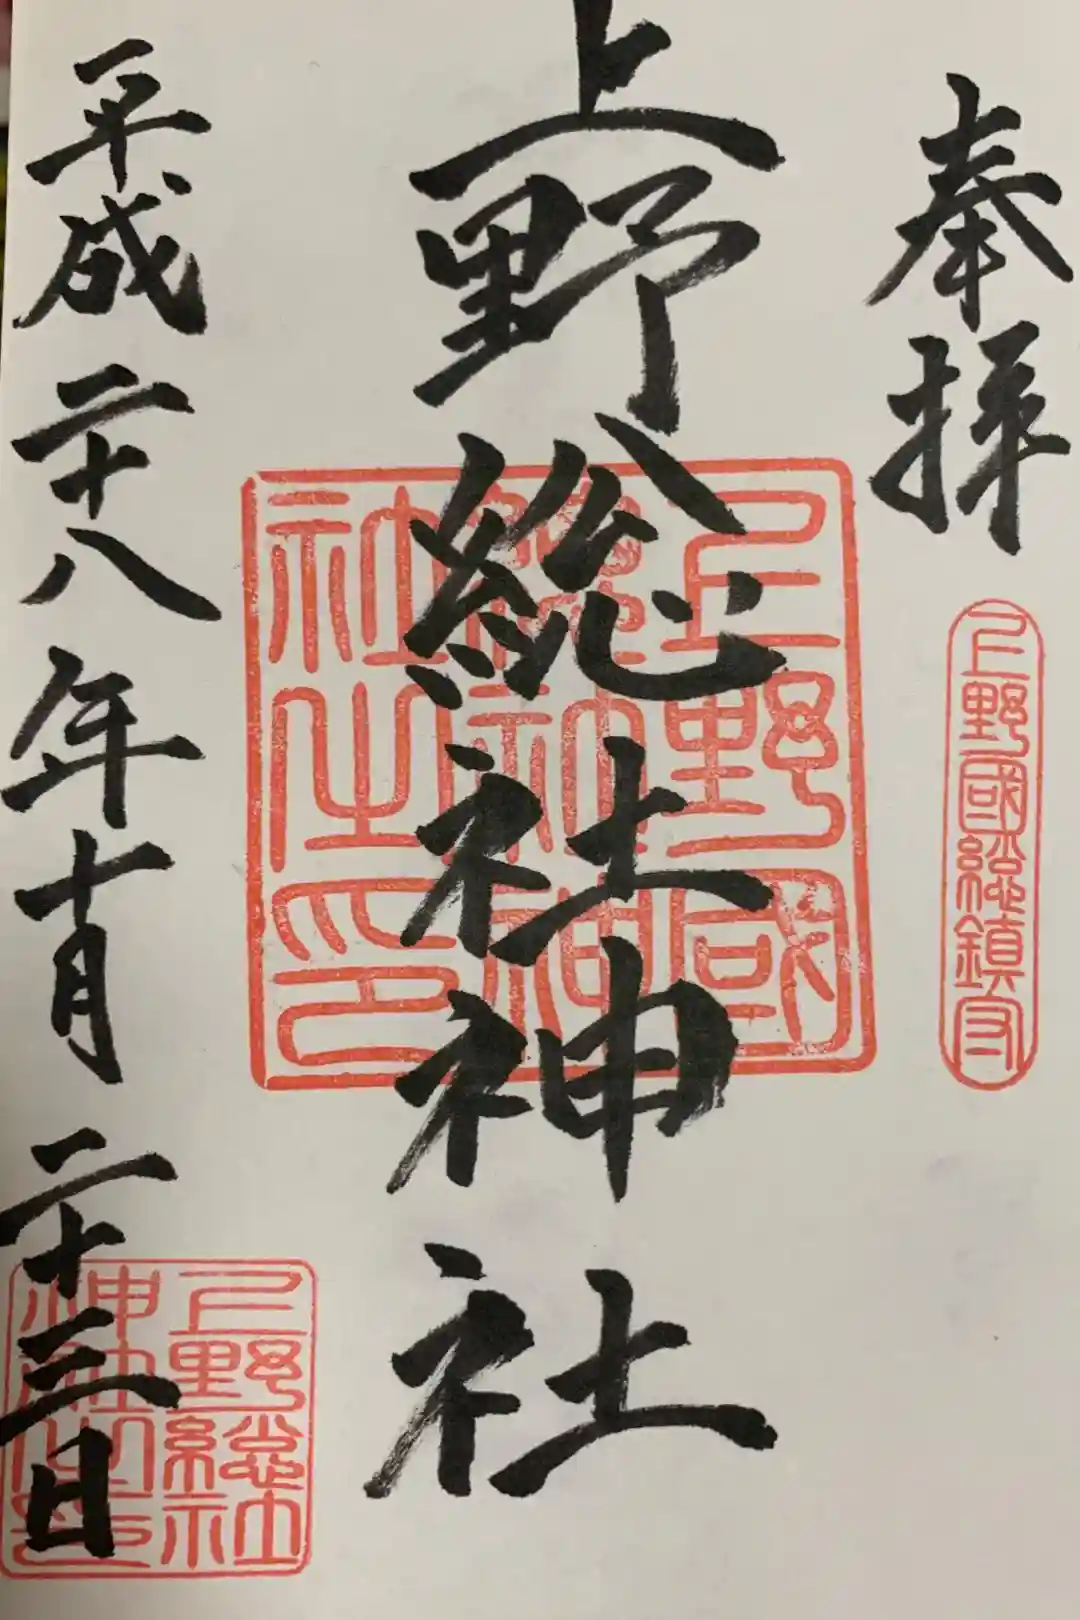 奉拝
上野國總鎮守
上野総社神社
上野國
總社神
社之印
平成二十八年十月二十三日
上野総社
神社之印